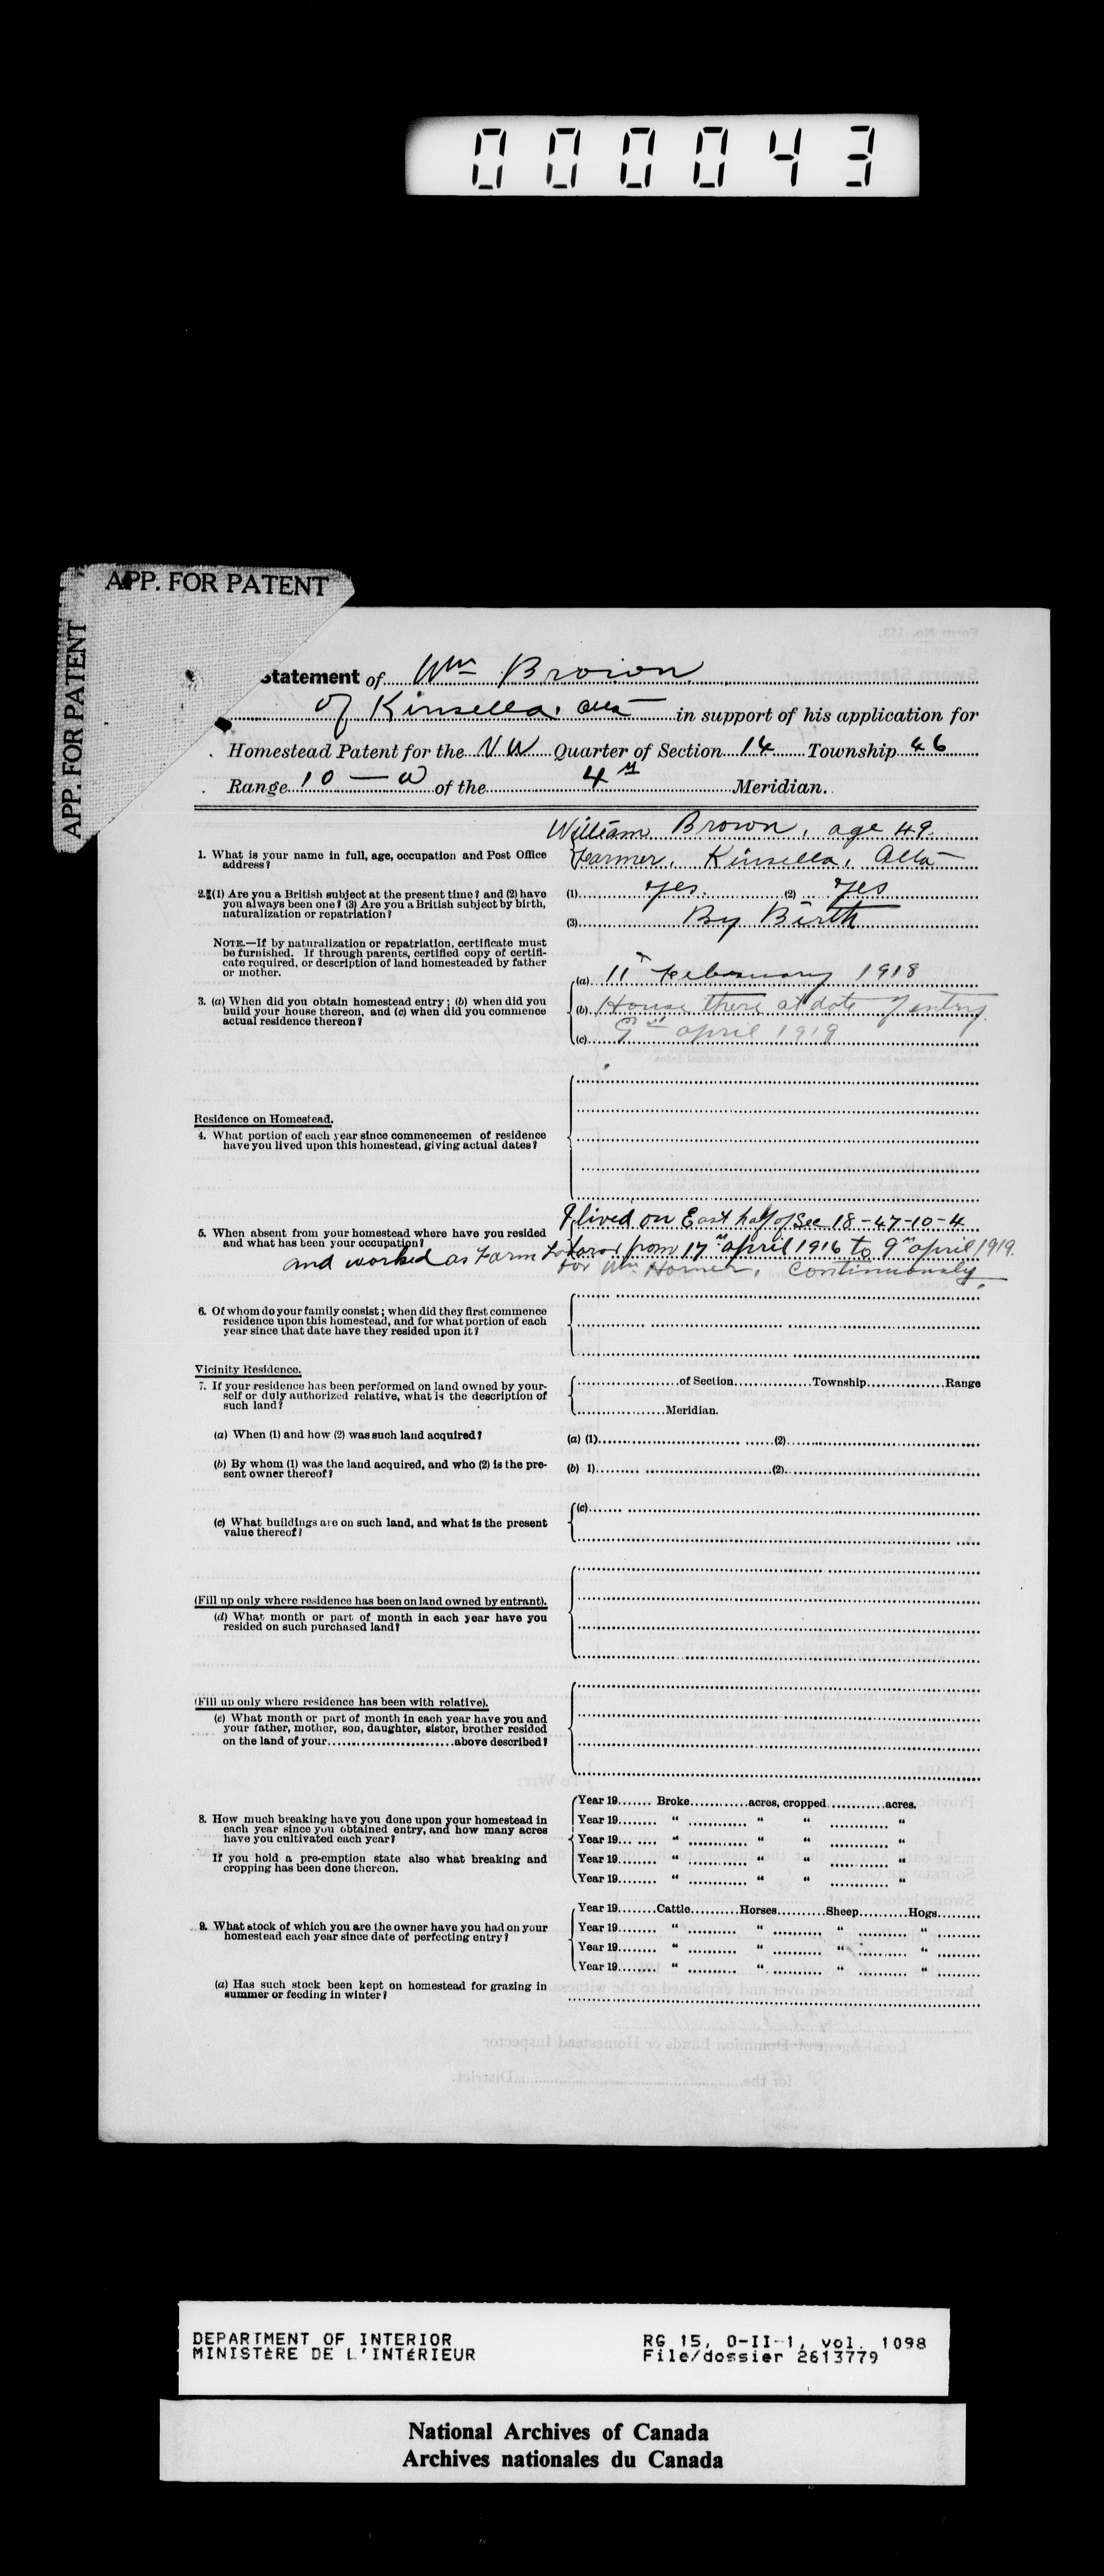 000043
APP. FOR PATENT
APP. FOR PATENT
Statement of Wm Brown
of Kinsella. Alta in support of his application for
Homestead Patent for the NW Quarter of Section 14 Township 46
Range 10 — W of the 4th Meridian.
William Brown, age 49.
1. What is your name in full, age, occupation and Post Office address?
Farmer, Kinsella, Alta
2. (1) Are you a British subject at the present time? and (2) have you always been one? (3) Are you a British subject by birth, naturalization or repatriation?
(1) Yes. (2) Yes
(3) By Birth
NOTE.—If by naturalization or repatriation, certificate must be furnished. If through parents, certified copy of certificate required, or description of land homesteaded by father or mother.
3. (a) When did you obtain homestead entry; (b) when did you build your house thereon, and (c) when did you commence actual residence thereon?
(a) 11th February 1918
(b) House there at date of entry.
(c) 9th April 1919
Residence on Homestead.
4. What portion of each year since commencemen of residence have you lived upon this homestead, giving actual dates?
5. When absent from your homestead where have you resided and what has been your occupation?
I lived on East half of Sec 18-47-10-4
and worked as Farm Labor from 17th April 1916 to 9th April 1919.
for Wm Horner. Continuously.
6. Of whom do your family consist; when did they first commence residence upon this homestead, and for what portion of each year since that date have they resided upon it?
Vicinity Residence.
7. If your residence has been performed on land owned by yourself or duly authorized relative, what is the description of such land?
of Section Township Range
Meridian.
(a) When (1) and how (2) was such land acquired?
(a) (1) (2)
(b) By whom (1) was the land acquired, and who (2) is the present owner thereof?
(b) 1) (2)
(c) What buildings are on such land, and what is the present value thereof?
(c)
(Fill up only where residence has been on land owned by entrant).
(d) What month or part of month in each year have you resided on such purchased land?
(Fill up only where residence has been with relative).
(e) What month or part of month in each year have you and your father, mother, son, daughter, sister, brother resided on the land of your above described?
8. How much breaking have you done upon your homestead in each year since you obtained entry, and how many acres have you cultivated each year?
If you hold a pre-emption state also what breaking and cropping has been done thereon.
Year 19 Broke acres, cropped acres.
Year 19 " " " "
Year 19 " " " "
Year 19 " " " "
Year 19 " " " "
9. What stock of which you are the owner have you had on your homestead each year since date of perfecting entry?
Year 19 Cattle Horses Sheep Hogs
Year 19 " " " "
Year 19 " " " "
Year 19 " " " "
(a) Has such stock been kept on homestead for grazing in summer or feeding in winter?
DEPARTMENT OF INTERIOR
MINISTÈRE DE L'INTÉRIEUR
RG 15, D-II-1, vol. 1098
File/dossier 2613779
National Archives of Canada
Archives nationales du Canada